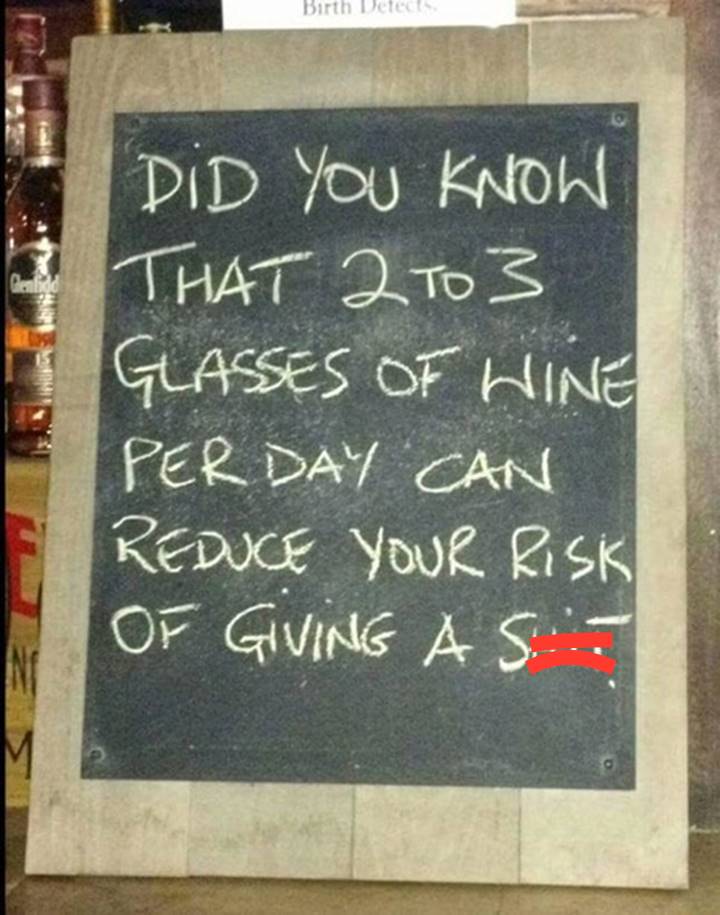 Birth Defects.
DID YOU KNOW
THAT 2 TO 3
GLASSES OF WINE
PER DAY CAN
REDUCE YOUR RISK
OF GIVING A
Glenfidd